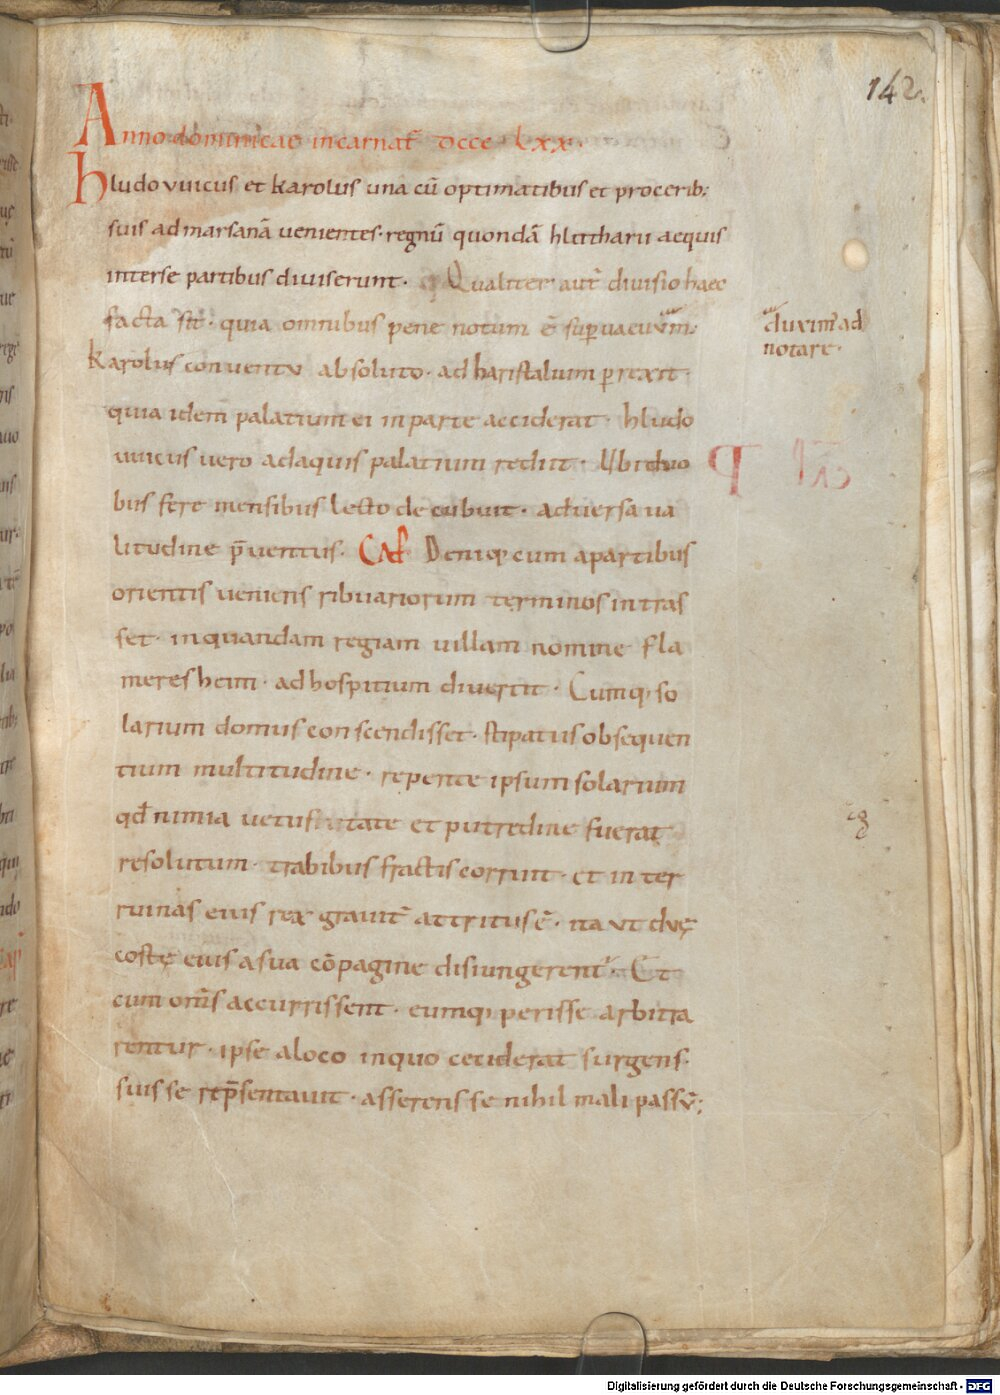 142.
Anno dominicae incarnat̄ dccclxx.
hludouuicus et karolus una cū optimatibus et procerib;
suis ad marsanā uenientes· regnū quondā hluthariı aequis
inter se partibus diuiserunt· Qualiter aut̄ diuisio haec
facta sit· quia omnibus pene notum ē superuacuum·
duximꝰ ad
notare·
karolus conuentu absoluto· ad haristalium perrexit·
quia idem palatium ei in parte acciderat· hludo
uuicus uero ad aquis palatium rediit· Ubi duo
bus fere mensibus lecto decubuit· aduersa ua
litudine p̄uentus· CAP Deniq; cum a partibus
orientis ueniens ribuariorum terminos intras
set· in quandam regiam uillam nomine fla
meresheim· ad hospitium diuertit· Cumq; so
larium domus conscendisset· stipatus obsequen
tium multitudine· repente ipsum solarium
qđ nimia uetustate et putredine fuerat
resolutum· trabibus fractis corruit· et inter
ruinas eius rex grauit̄ attritus ē· ita ut duę
costę eius a sua cōpagine disiungerent̄· Et
cum om̄s accurrissent· eumq; perisse arbitra
rentur· ipse a loco in quo ceciderat surgens·
suis se rep̄sentauit· asserens se nihil mali passū;
Digitalisierung gefördert durch die Deutsche Forschungsgemeinschaft - DFG